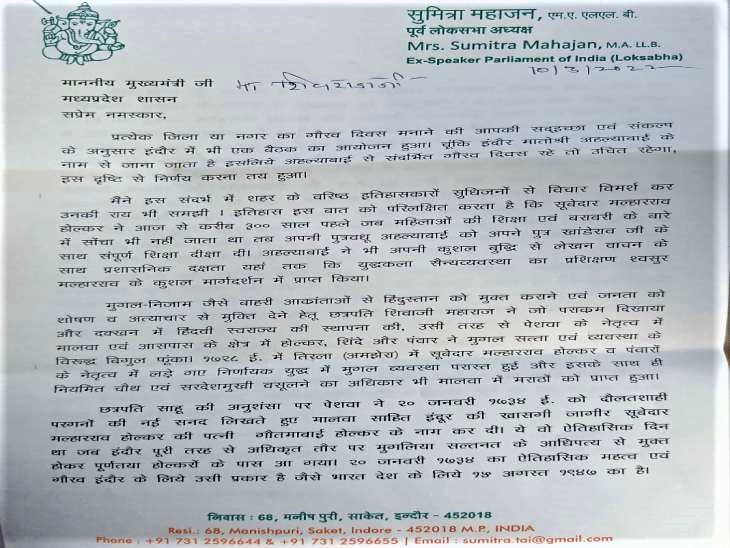 सुमित्रा महाजन, एम.ए. एलएल. बी.
पूर्व लोकसभा अध्यक्ष
Mrs. Sumitra Mahajan, M.A. LL.B.
Ex-Speaker Parliament of India (Loksabha)
10/3/2022
माननीय मुख्यमंत्री जी मा शिवराजजी
मध्यप्रदेश शासन
सप्रेम नमस्कार,
प्रत्येक जिला या नगर का गौरव दिवस मनाने की आपकी सद्इच्छा एवं संकल्प
के अनुसार इंदौर में भी एक बैठक का आयोजन हुआ। चूंकि इंदौर मातोश्री अहल्याबाई के
नाम से जाना जाता है इसलिये अहल्याबाई से संदर्भित गौरव दिवस रहे तो उचित रहेगा,
इस दृष्टि से निर्णय करना तय हुआ।
मैने इस संदर्भ में शहर के वरिष्ठ इतिहासकारों सुधिजनों से विचार विमर्श कर
उनकी राय भी समझी । इतिहास इस बात को परिलक्षित करता है कि सूबेदार मल्हारराव
होल्कर ने आज से करीब ३०० साल पहले जब महिलाओं की शिक्षा एवं बराबरी के बारे
में सोंचा भी नहीं जाता था तब अपनी पुत्रवधू अहल्याबाई को अपने पुत्र खांडेराव जी के
साथ संपूर्ण शिक्षा दीक्षा दी। अहल्याबाई ने भी अपनी कुशल बुद्धि से लेखन वाचन के
साथ प्रशासनिक दक्षता यहां तक कि युद्धकला सैन्यव्यवस्था का प्रशिक्षण श्वसुर
मल्हारराव के कुशल मार्गदर्शन में प्राप्त किया।
मुगल-निजाम जैसे बाहरी आकांताओं से हिंदुस्तान को मुक्त कराने एवं जनता को
शोषण व अत्याचार से मुक्ति देने हेतू छत्रपति शिवाजी महाराज ने जो पराकम दिखाया
और दक्खन में हिंदवी स्वराज्य की स्थापना की, उसी तरह से पेशवा के नेतृत्व में
मालवा एवं आसपास के क्षेत्र में होल्कर, शिंदे और पंवार ने मुगल सत्ता एवं व्यवस्था के
विरूद्ध बिगुल फूंका। १७२८ ई. में तिरला (अमझेरा) में सूबेदार मल्हारराव होल्कर व पंवारों
के नेतृत्व में लड़े गए निर्णायक युद्ध में मुगल व्यवस्था परास्त हुई और इसके साथ ही
नियमित चौथ एवं सरदेशमुखी वसूलने का अधिकार भी मालवा में मराठों को प्राप्त हुआ।
छत्रपति साहू की अनुशंसा पर पेशवा ने २० जनवरी १७३४ ई. को दौलतशाही
परगनों की नई सनद लिखते हुए मालवा साहित इंदूर की खासगी जागीर सूबेदार
मल्हारराव होल्कर की पत्नी गौतमाबाई होल्कर के नाम कर दी। ये वो ऐतिहासिक दिन
था जब इंदौर पूरी तरह से अधिकृत तौर पर मुगलिया सल्तनत के आधिपत्य से मुक्त
होकर पूर्णतया होल्करों के पास आ गया। २० जनवरी १७३४ का ऐतिहासिक महत्व एवं
गौरव इंदौर के लिये उसी प्रकार है जैसे भारत देश के लिये १५ अगस्त १९४७ का है।
निवास : 68, मनीष पुरी, साकेत, इन्दौर - 452018
Resi.: 68, Manishpuri, Saket, Indore - 452018 M.P., INDIA
Phone : +91 731 2596644 & +91 731 2596655 | Email : sumitra.tai@gmail.com